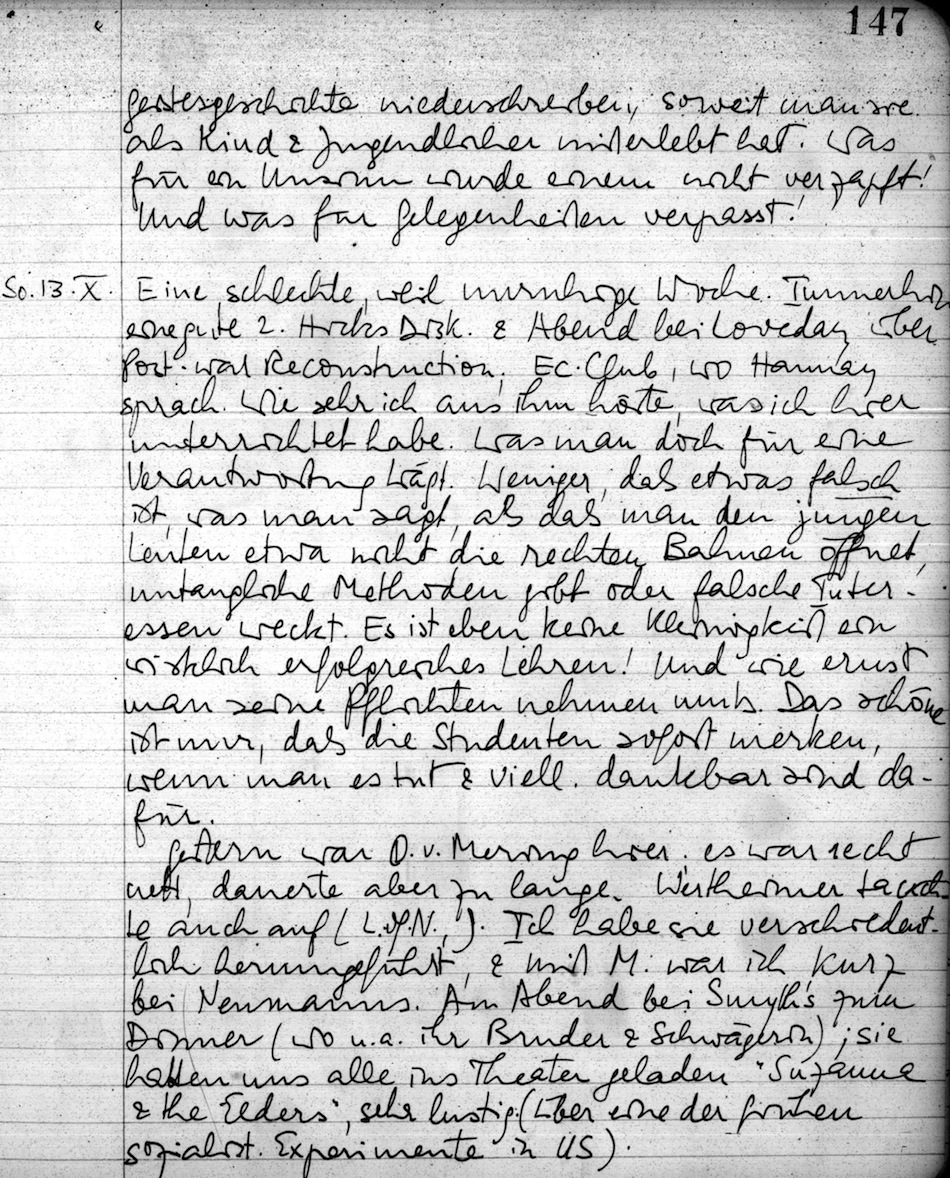 147
geistesgeschichte niederschreiben, soweit man sie
als Kind & Jugendlicher miterlebt hat. Was
für ein Unsinn wurde einem nicht verzapft!
Und was für Gelegenheiten verpasst!
So. 13. X. Eine schlechte, weil unruhige Woche. Immerhin
eine gute 2. Hicks Disk. & Abend bei Loveday über
Post-war Reconstruction, Ec. Club, wo Hannay
sprach. Wie sehr ich aus ihm hörte, was ich hier
unterrichtet habe. Was man doch für eine
Verantwortung trägt. Weniger, dass etwas falsch
ist, was man sagt, als dass man den jungen
Leuten etwa nicht die rechten Bahnen öffnet,
untaugliche Methoden gibt oder falsche Inter-
essen weckt. Es ist eben keine Kleinigkeit ein
wirklich erfolgreiches Lehren! Und wie ernst
man seine Pflichten nehmen muss. Das schöne
ist nur, dass die Studenten sofort merken,
wenn man es tut & viell. dankbar sind da-
für.
Gestern war O. v. Mering hier. es war recht
nett, dauerte aber zu lange. Wertheimer tauch
te auch auf (L.o.N.). Ich habe sie verschiedent-
lich herumgeführt, & mit M. war ich kurz
bei Neumanns. Am Abend bei Smyth's zum
Dinner (wo u.a. ihr Bruder & Schwägerin); sie
hatten uns alle ins Theater geladen "Suzanna
& the Elders", sehr lustig. (über eine der frühen
sozialist. Experimente in US).